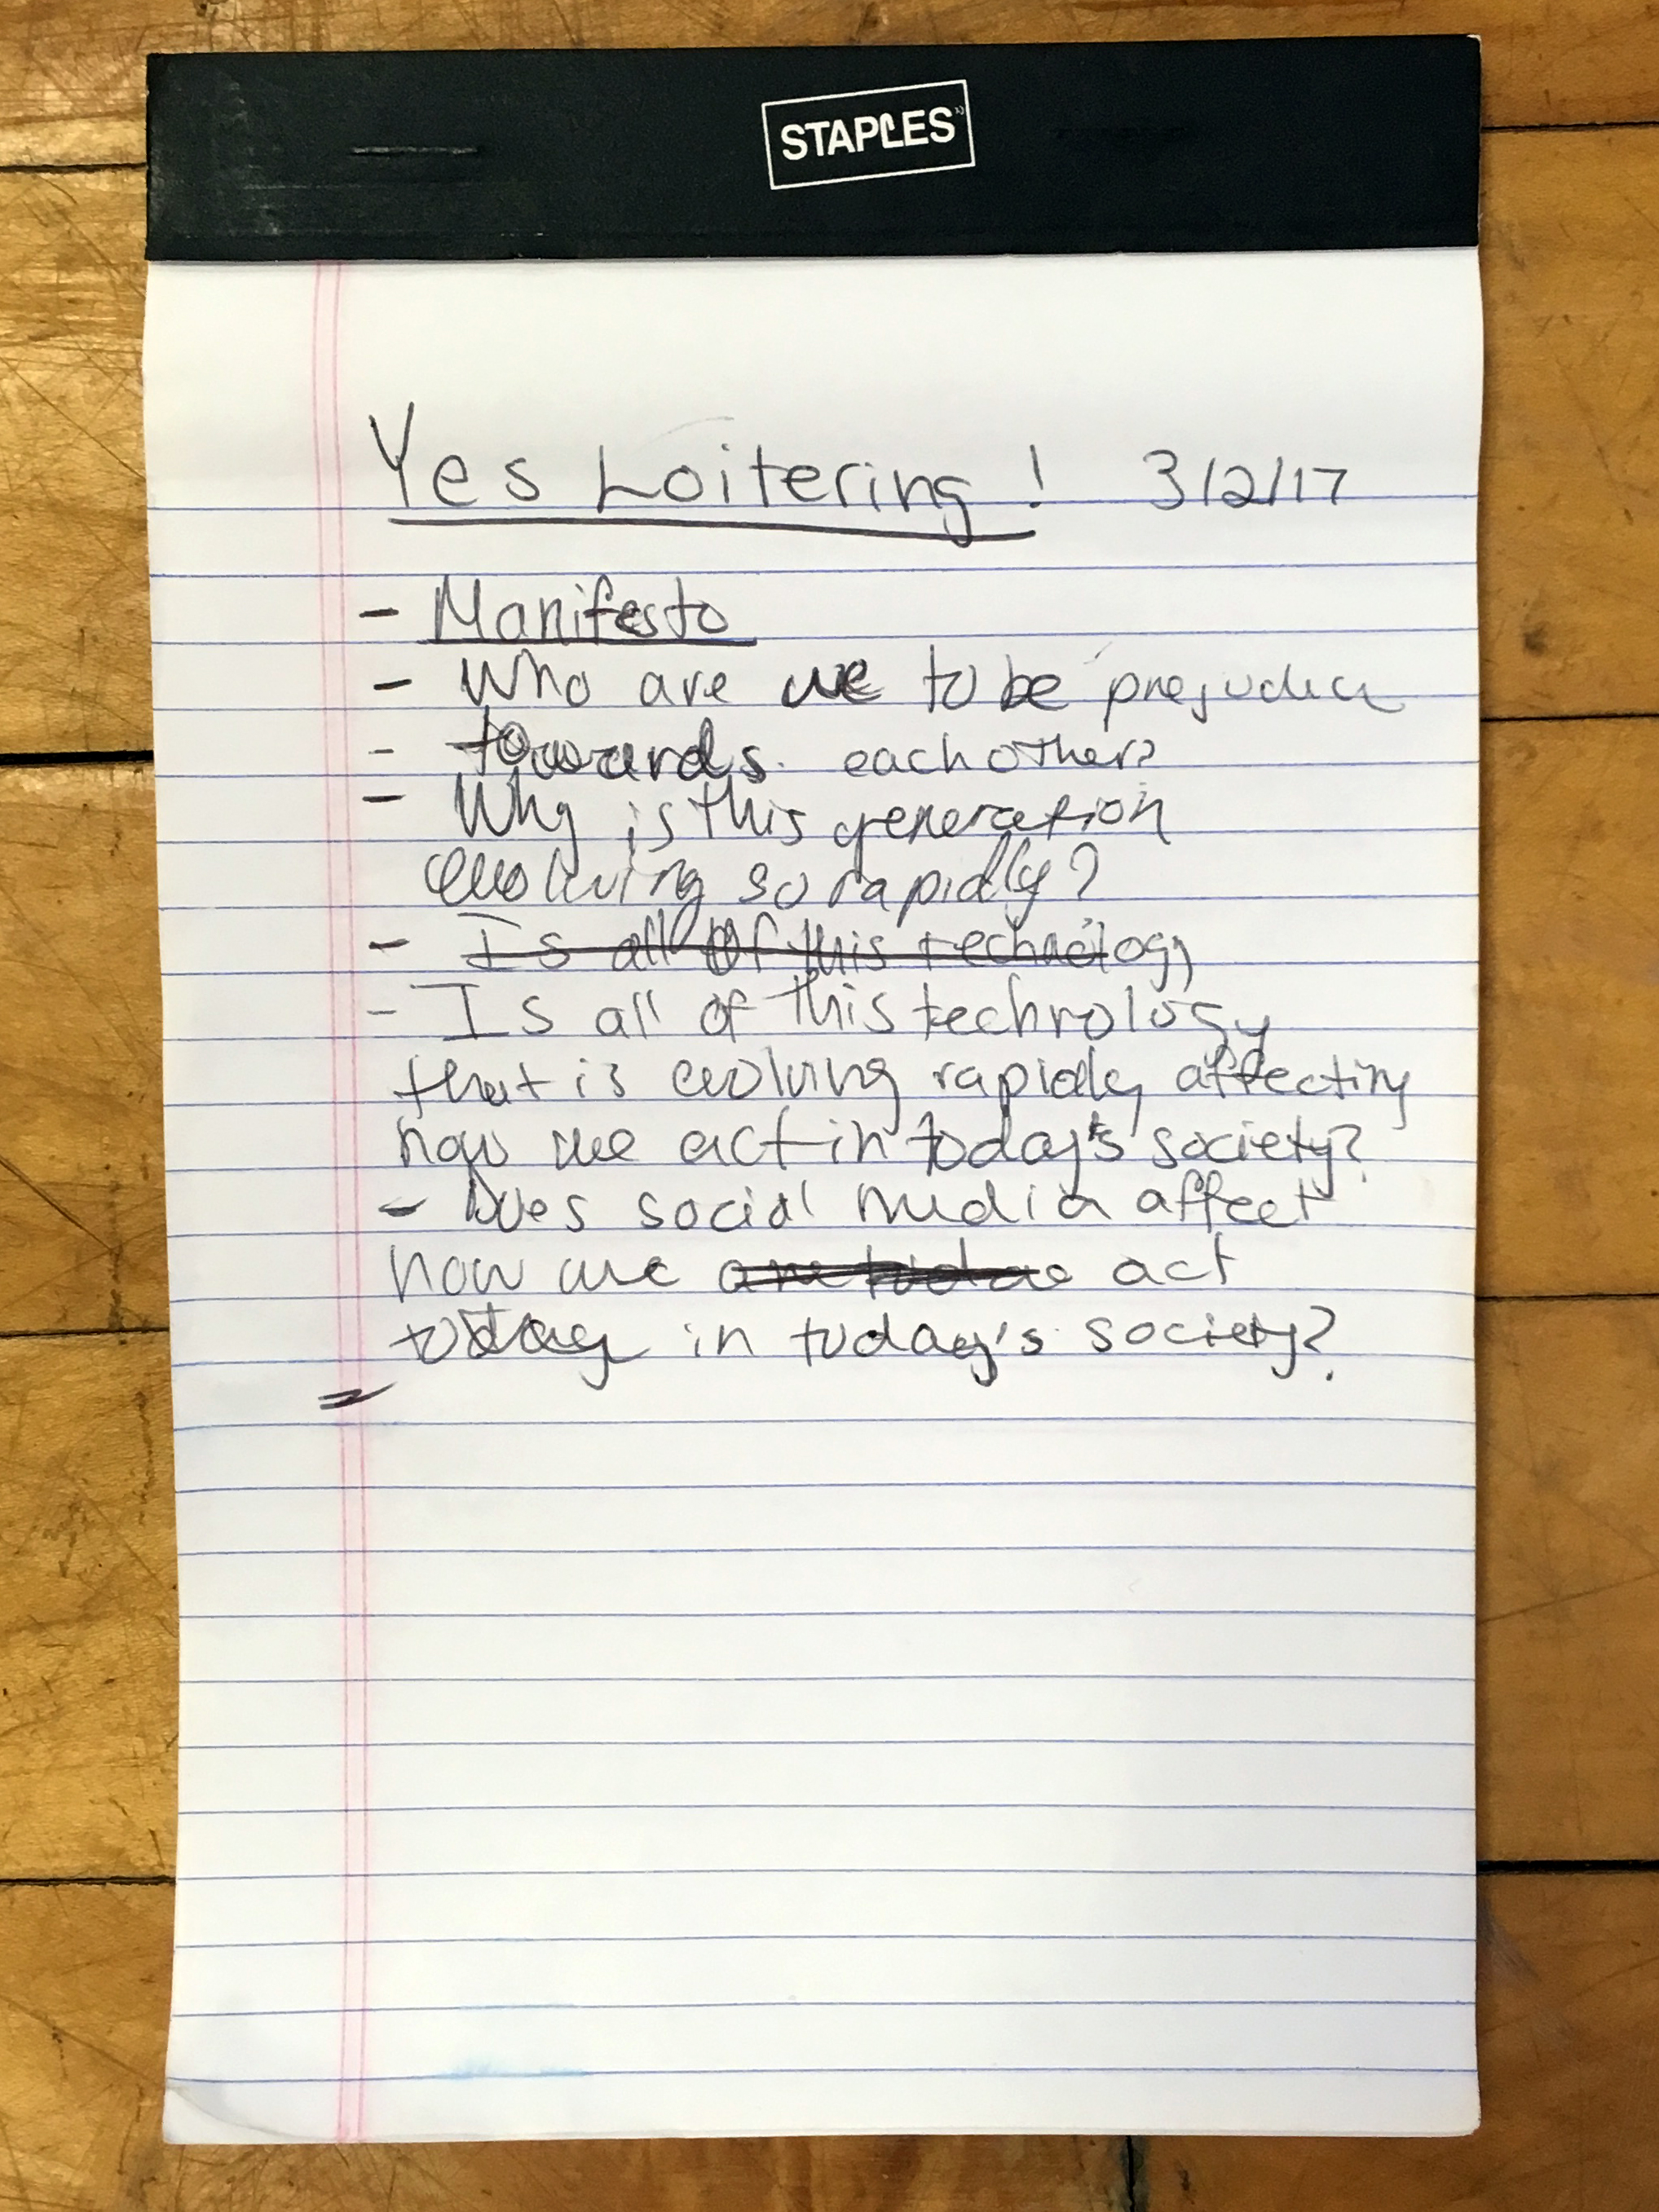 STAPLES
Yes Loitering! 3/2/17
- Manifesto
- Who are we to be prejudice
- towards. each other?
- Why is this generation
evolving so rapidly?
- Is all of this technology
- Is all of this technology
that is evolving rapidly affecting
how we act in today's society?
- Does social media affect
how we act
today in today's society?